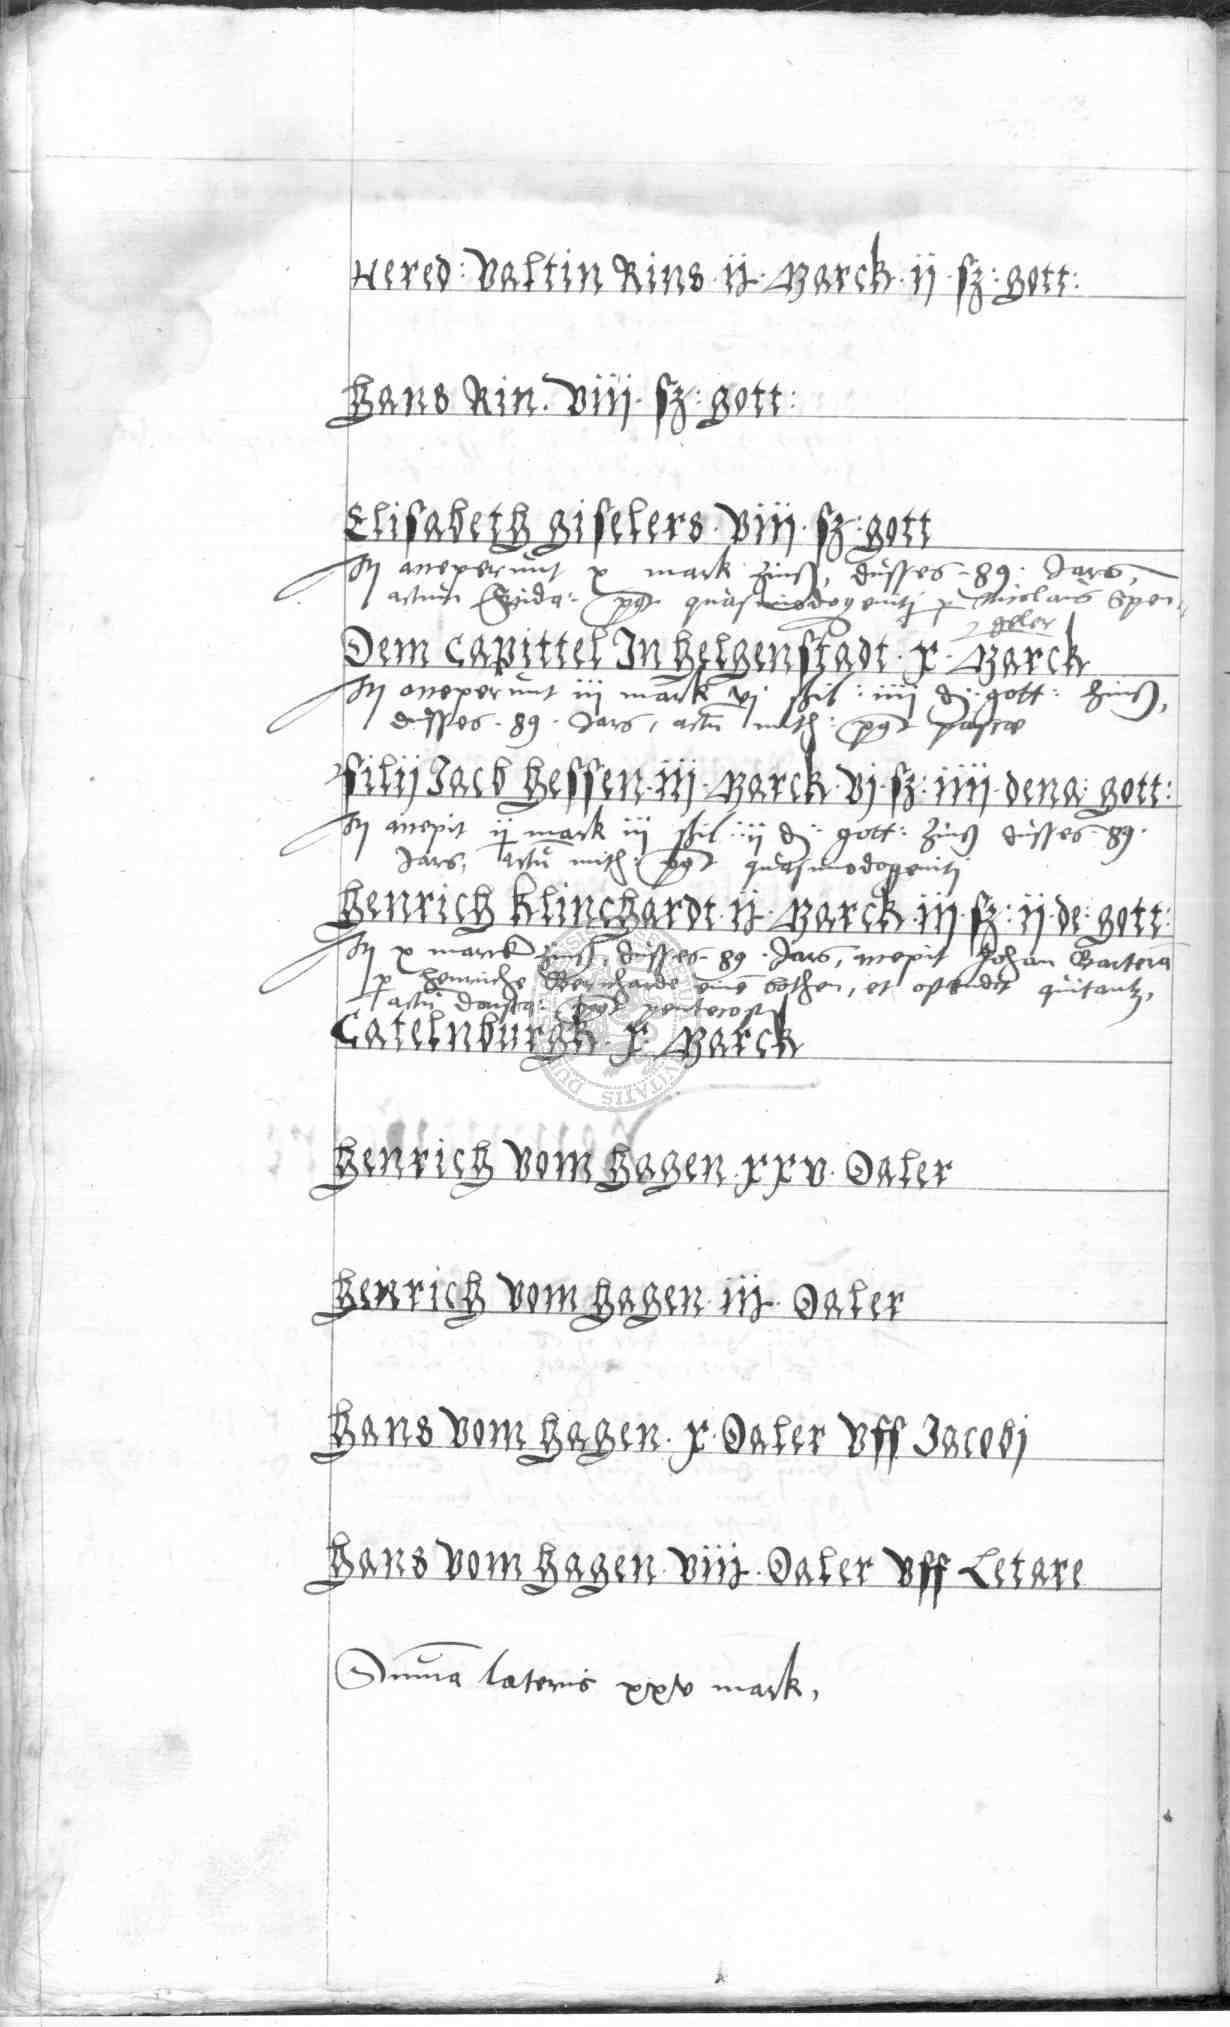 Hered: Valtin Rins · ij · Marck · ij · sz: gott:
Hans Rin. viij · sz: gott:
Elisabeth giselers · viij · sz: gott
acceperunt x mark Zinß, dusses · 89 · Jars,
actum quasimodogeniti p Nicolaus Spen-
geler
Dem Capittel In helgenstadt · x · Marck
acceperunt iii mark vj shil: iiii d: gott: Zinß,
dusses · 89 · Jars, actu mith: post pasce
filij Jacob hessen · iij · Marck · vj · sz: iiij · dena: gott:
accepit ij mark iij shil: ij d: gott: Zinß dusses · 89 ·
Jars, actu mith: post quasimodogeniti
Henrich Klinchardt · ij · Marck · iij · sz: ij · de: gott:
x marck Zinß, dusses · 89 · Jars, accepit Johan
p Henriche eine bothen, et ostendit quitantz,
actu post pentecost
Catelnburgk · x · Marck
Henrich vom Hagen · xxv · Daler
Henrich vom Hagen · iij · Daler
Hans vom Hagen · x · Daler vff Jacobj
Hans vom Hagen · viij · Daler vff Letare
Summa lateris xxv mark,